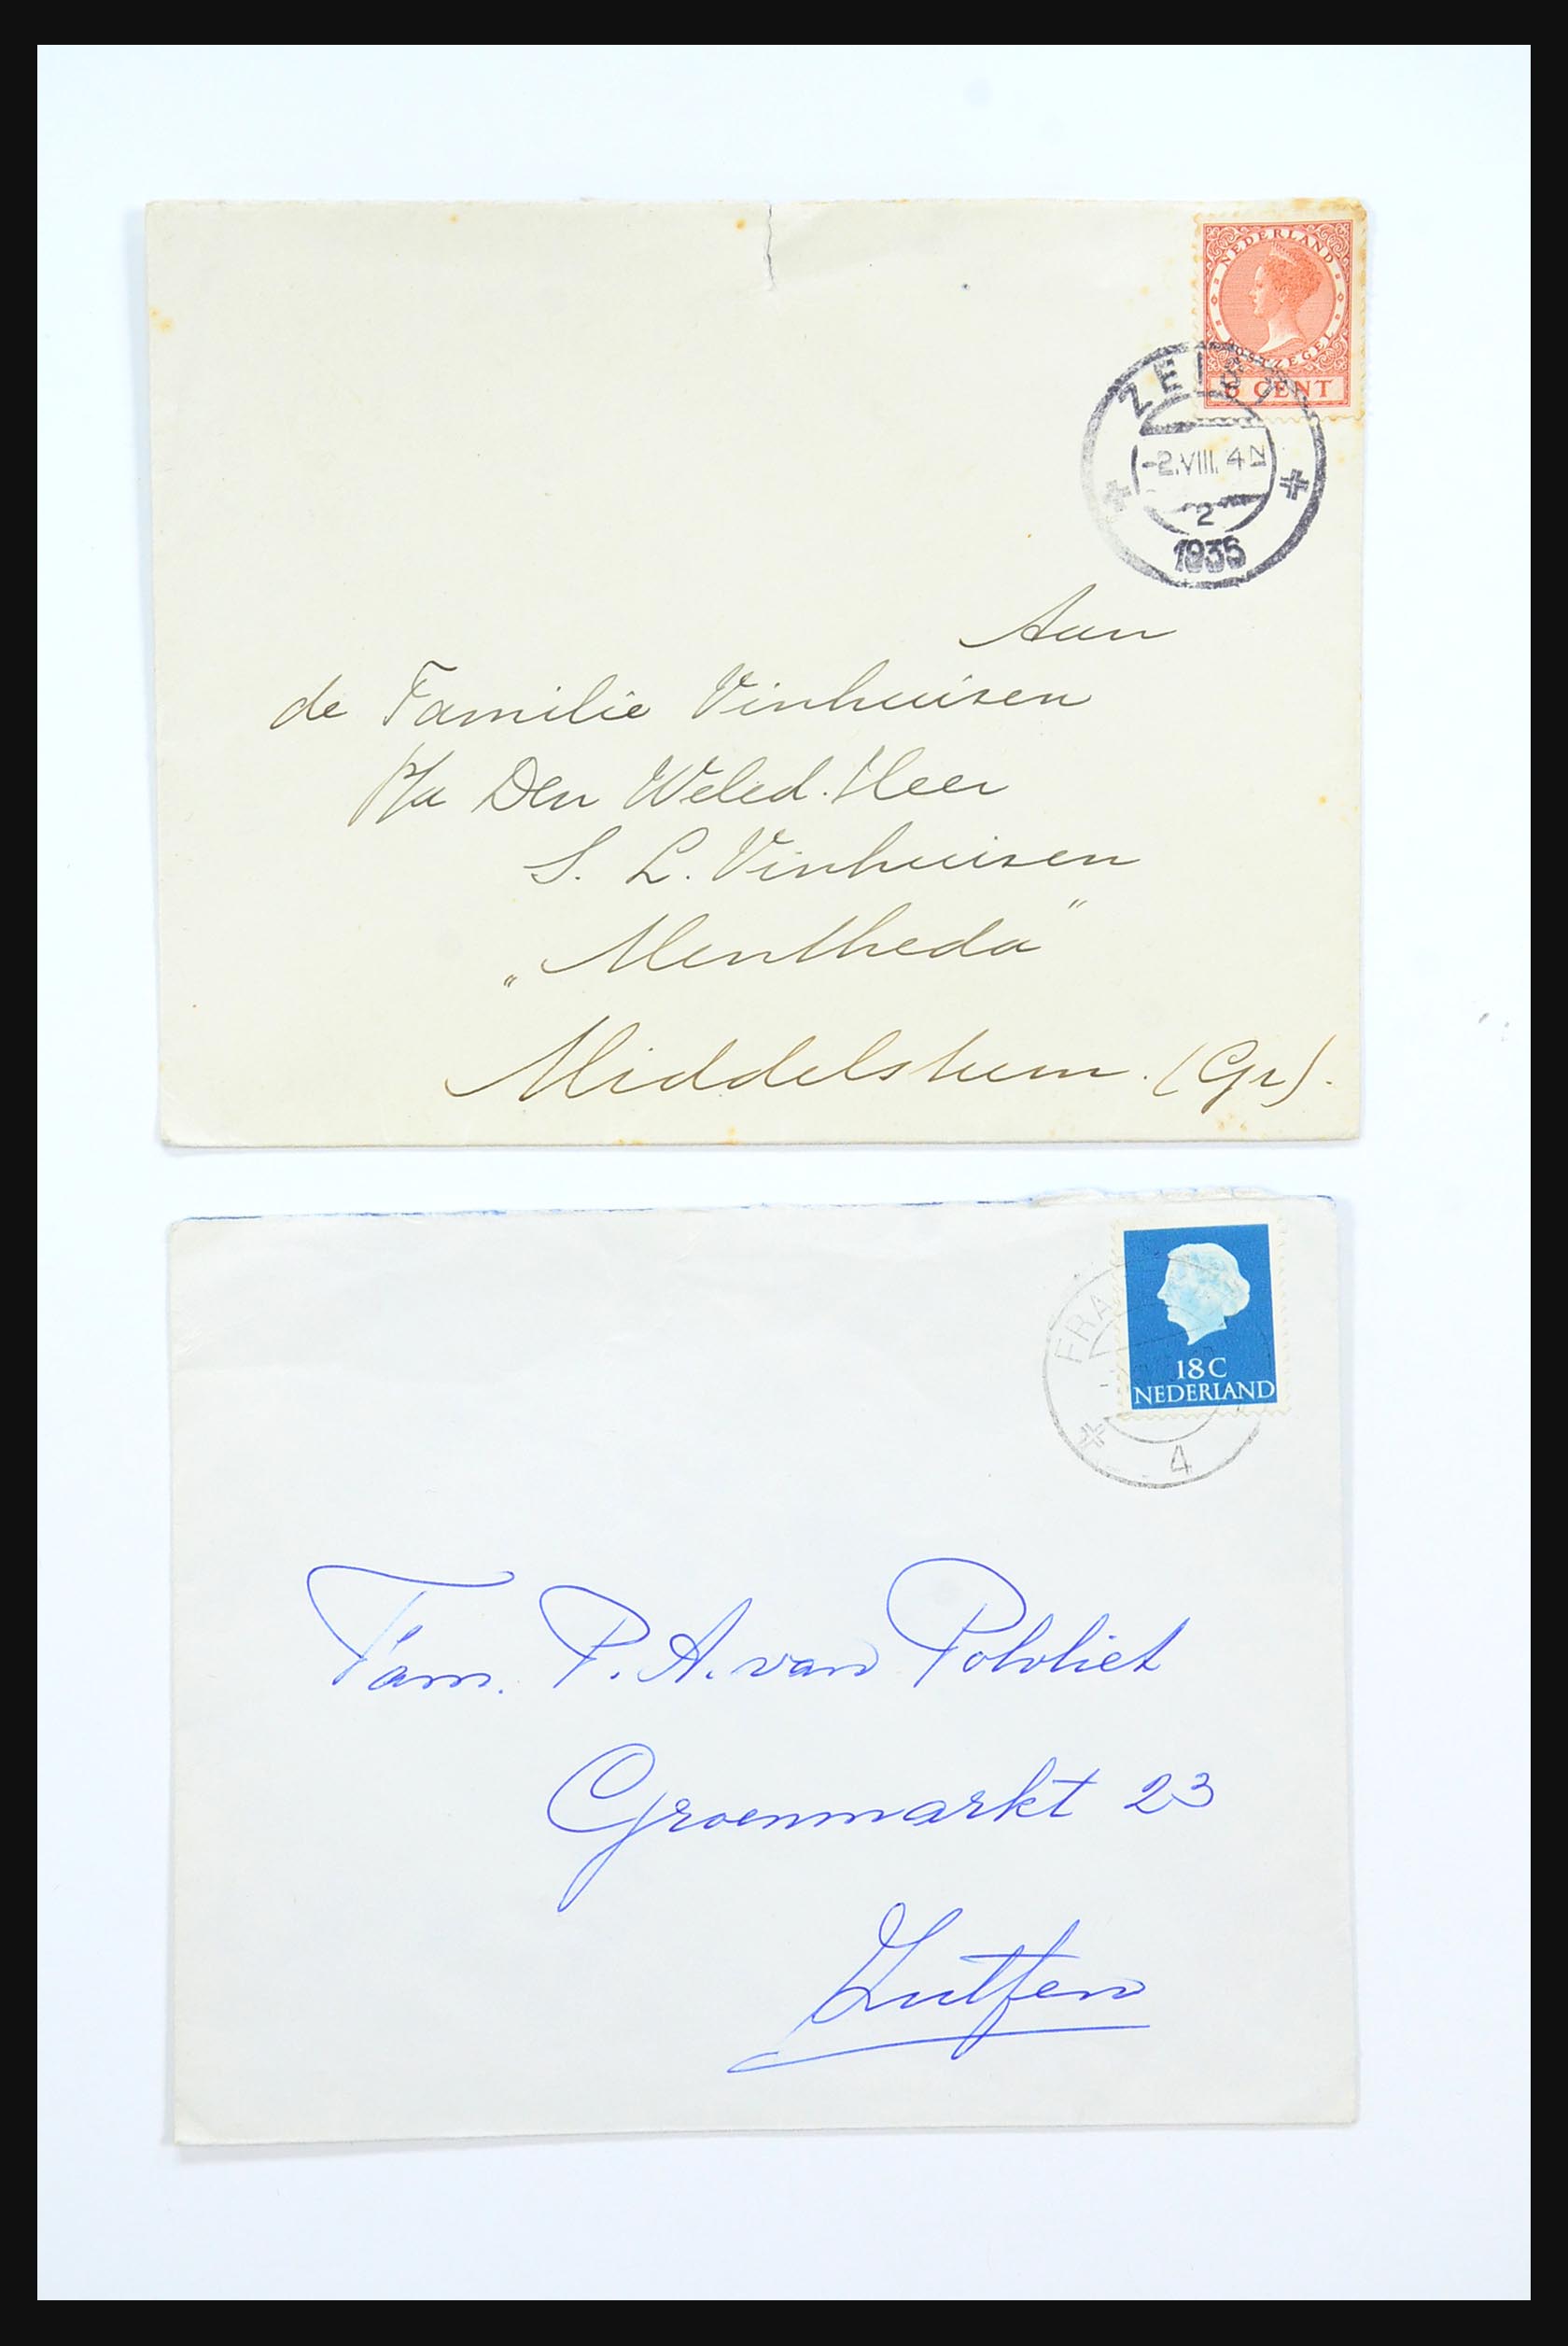 NEDERLAND
POSTZEGEL
6 CENT
ZEIST
-2.VIII. 4N
2
1935
Aan
de Familie Vinhuizen
P/a Den Weled. Heer
S. L. Vinhuizen
„Mentheda"
Middelstum. (Gr).
18C
NEDERLAND
FRA
4
Fam. P. A. van Polvliet
Groenmarkt 23
Zutfen